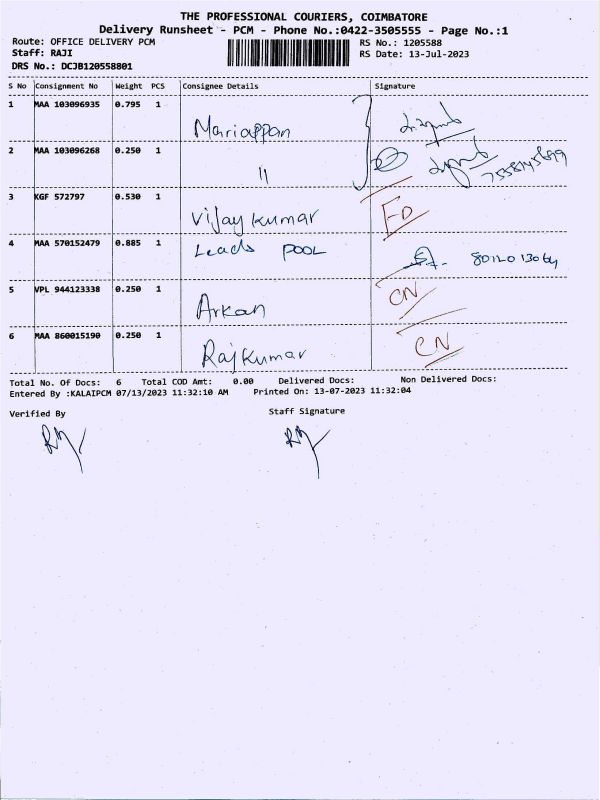 THE PROFESSIONAL COURIERS, COIMBATORE
Delivery Runsheet - PCM - Phone No.:0422-3505555 - Page No.:1
Route: OFFICE DELIVERY PCM RS No.: 1205588
Staff: RAJI RS Date: 13-Jul-2023
DRS No.: DCJB120558801
S No Consignment No Weight PCS Consignee Details Signature
1 MAA 103096935 0.795 1
Mariappan
2 MAA 103096268 0.250 1
"
3 KGF 572797 0.530 1
Vijay kumar FD
4 MAA 570152479 0.885 1
Leads POOL
5 VPL 944123338 0.250 1
Arkan CN
6 MAA 860015190 0.250 1
Rajkumar CN
Total No. Of Docs: 6 Total COD Amt: 0.00 Delivered Docs: Non Delivered Docs:
Entered By :KALAIPCM 07/13/2023 11:32:10 AM Printed On: 13-07-2023 11:32:04
Verified By Staff Signature